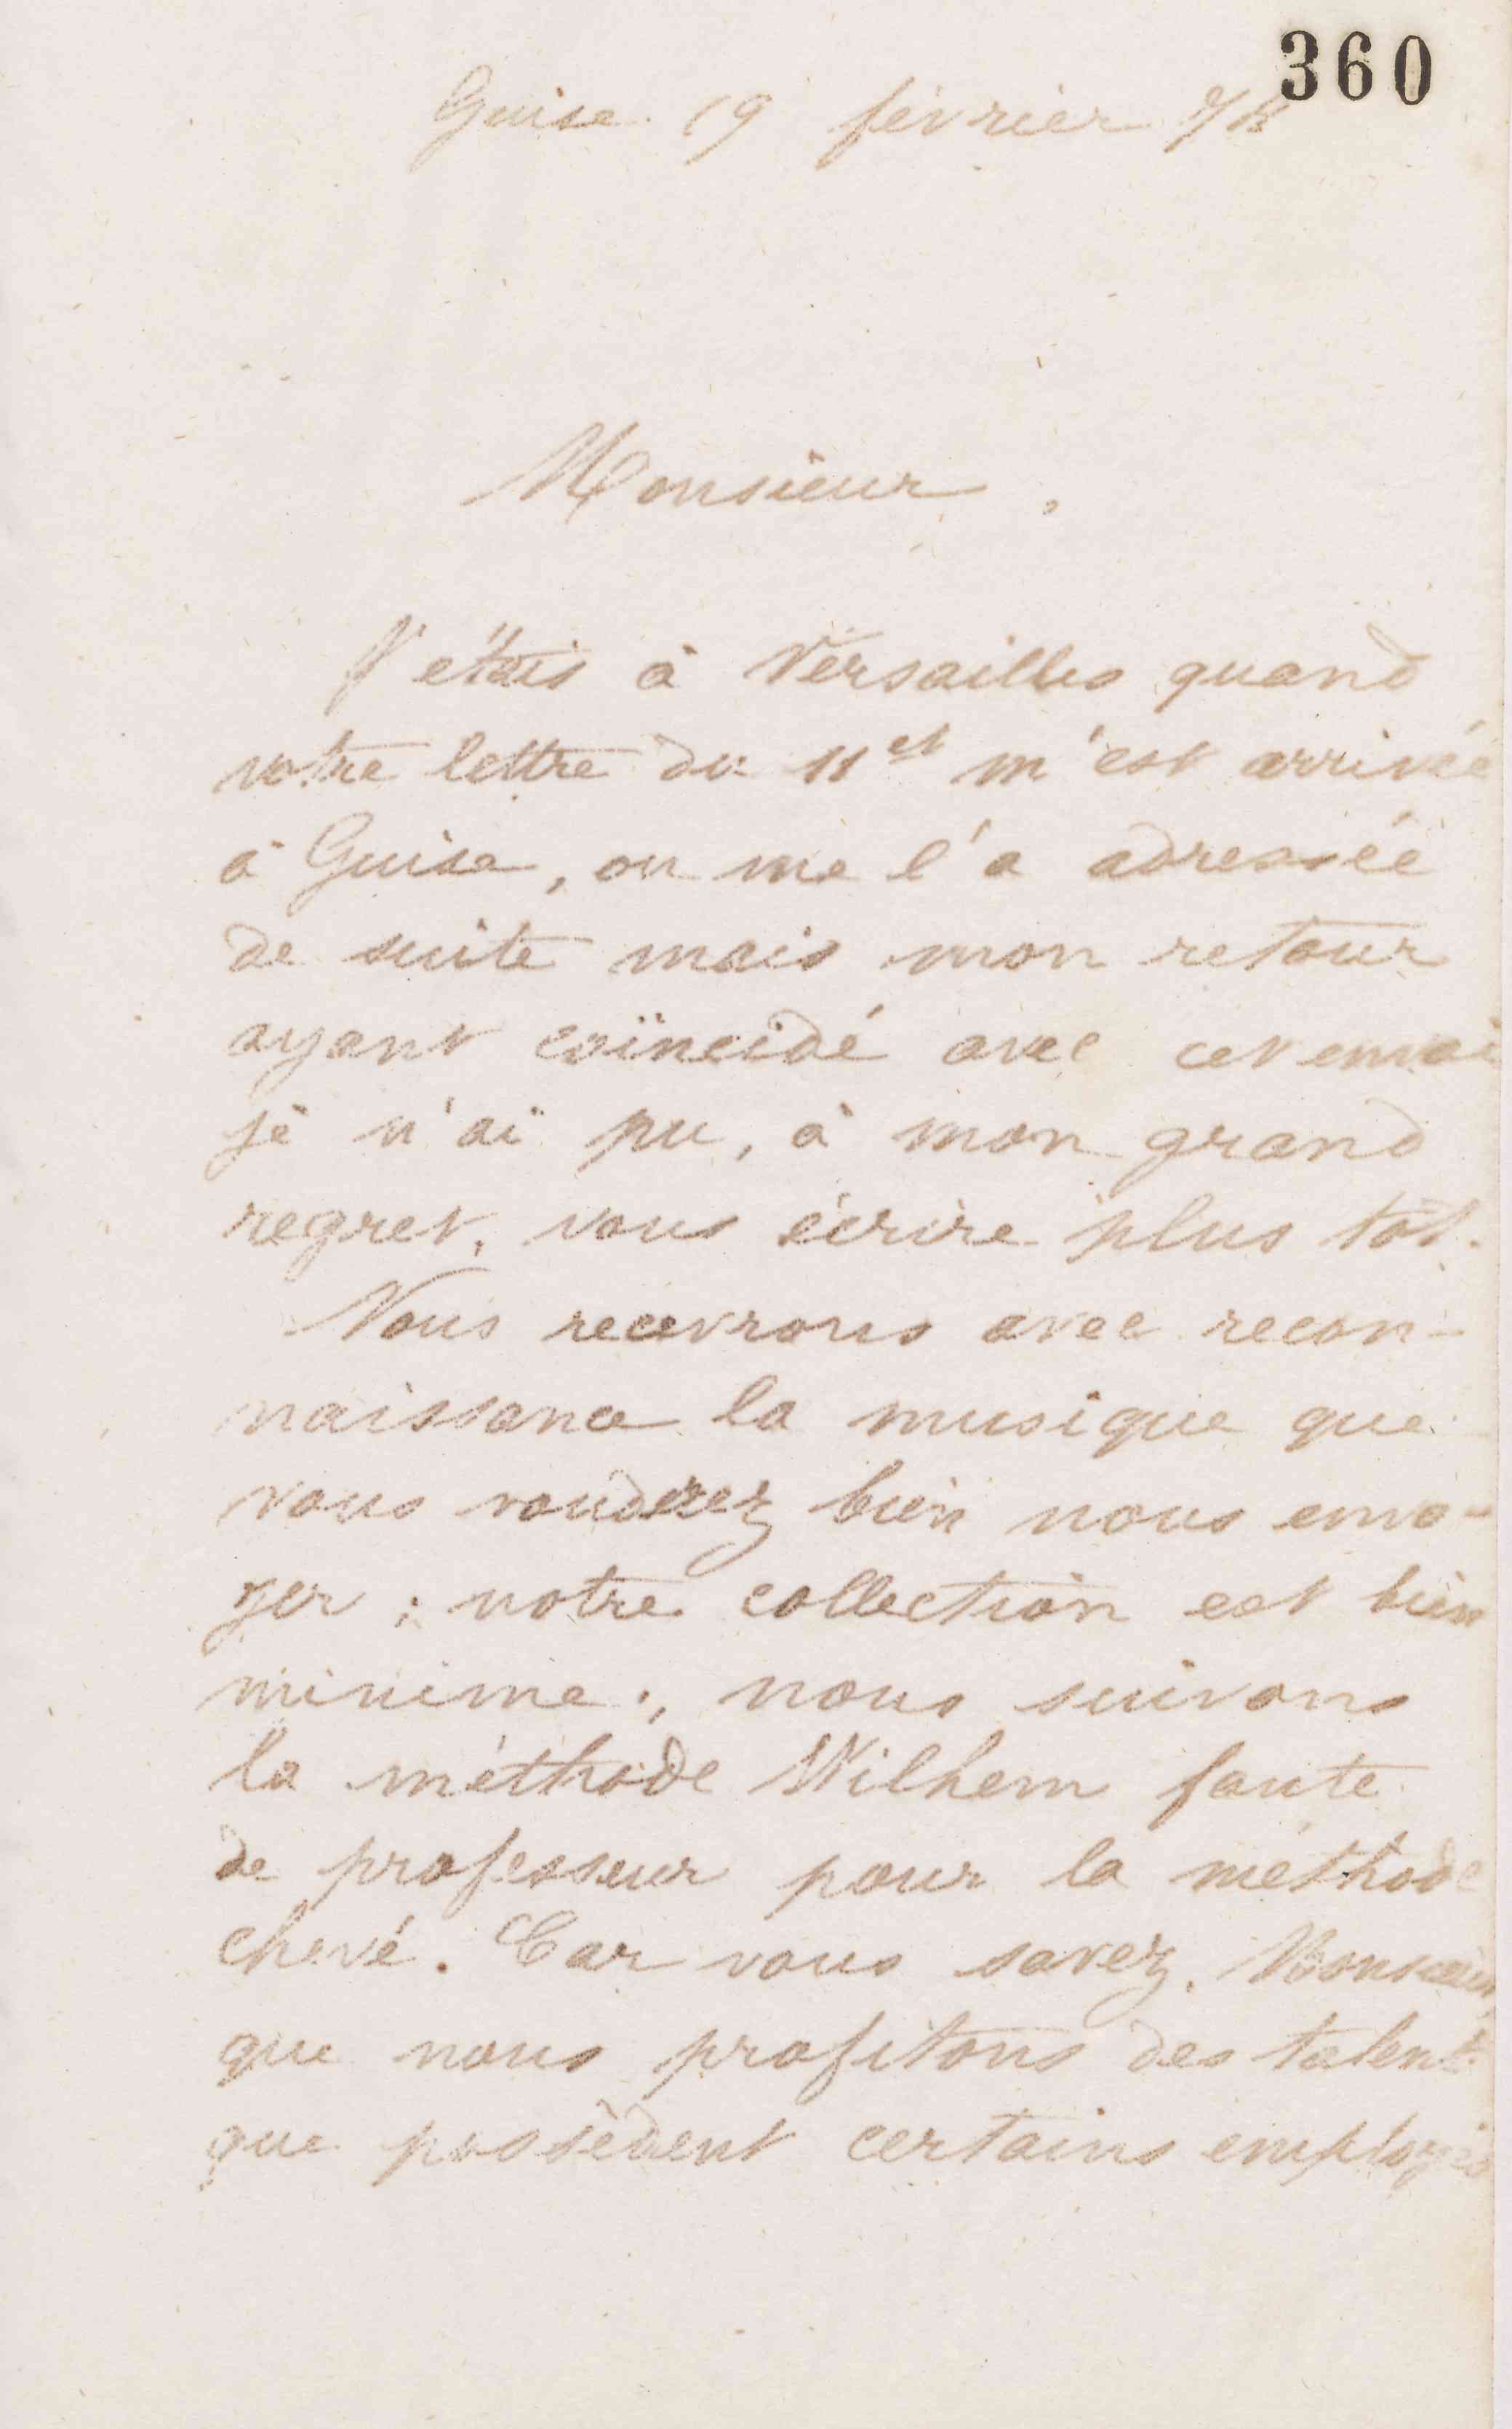 360
Guise 19 février
Monsieur,
J'étais à Versailles quand
votre lettre du 11 ct m'est arrivée
à Guise, on me l'a adressée
de suite mais mon retour
ayant coïncidé avec cet envoi
je n'ai pu, à mon grand
regret, vous écrire plus tôt.
Nous recevrons avec recon-
naissance la musique que
vous voudrez bien nous envo-
yer ; notre collection est bien
minime ; nous suivons
la méthode Wilhem faute
de professeur pour la méthode
chevé. Car vous savez, Monsieur,
que nous profitons des talents
que possèdent certains employés